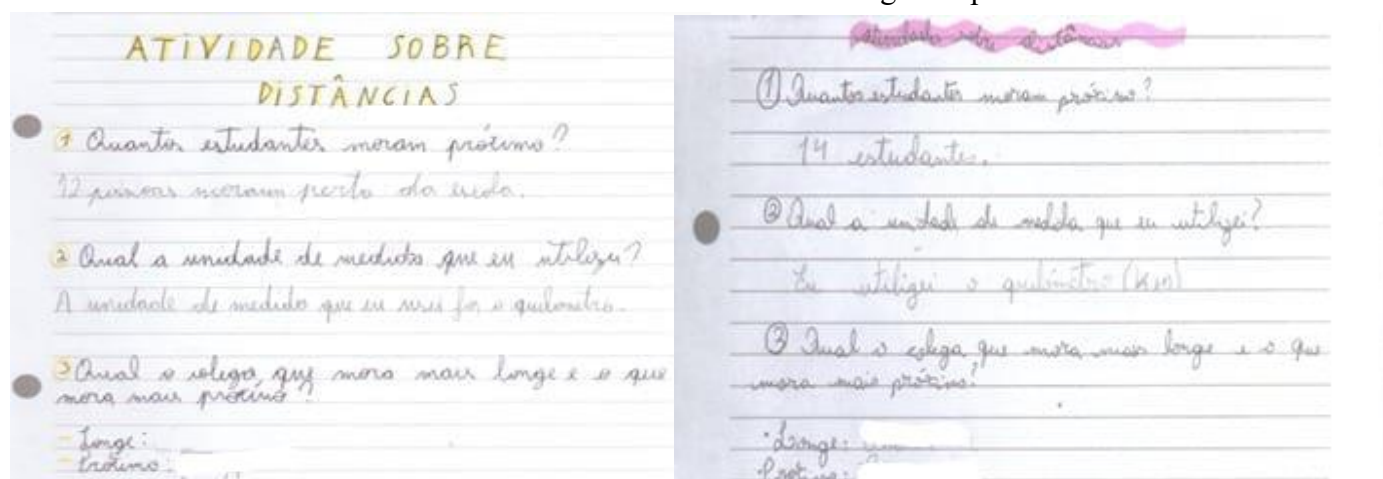 ATIVIDADE SOBRE
DISTÂNCIAS
1 Quantos estudantes moram próximo?
12 pessoas moram perto da escola.
2 Qual a unidade de medida que eu utilizei?
A unidade de medida que eu usei foi o quilometro.
3 Qual o colega que mora mais longe e o que
mora mais próximo?
- Longe:
- Próximo:
Atividade sobre distâncias
① Quantos estudantes moram próximo?
14 estudantes.
② Qual a unidade de medida que eu utilizei?
Eu utilizei o quilômetro (Km)
③ Qual o colega que mora mais longe e o que
mora mais próximo?
• Longe:
• Próximo: